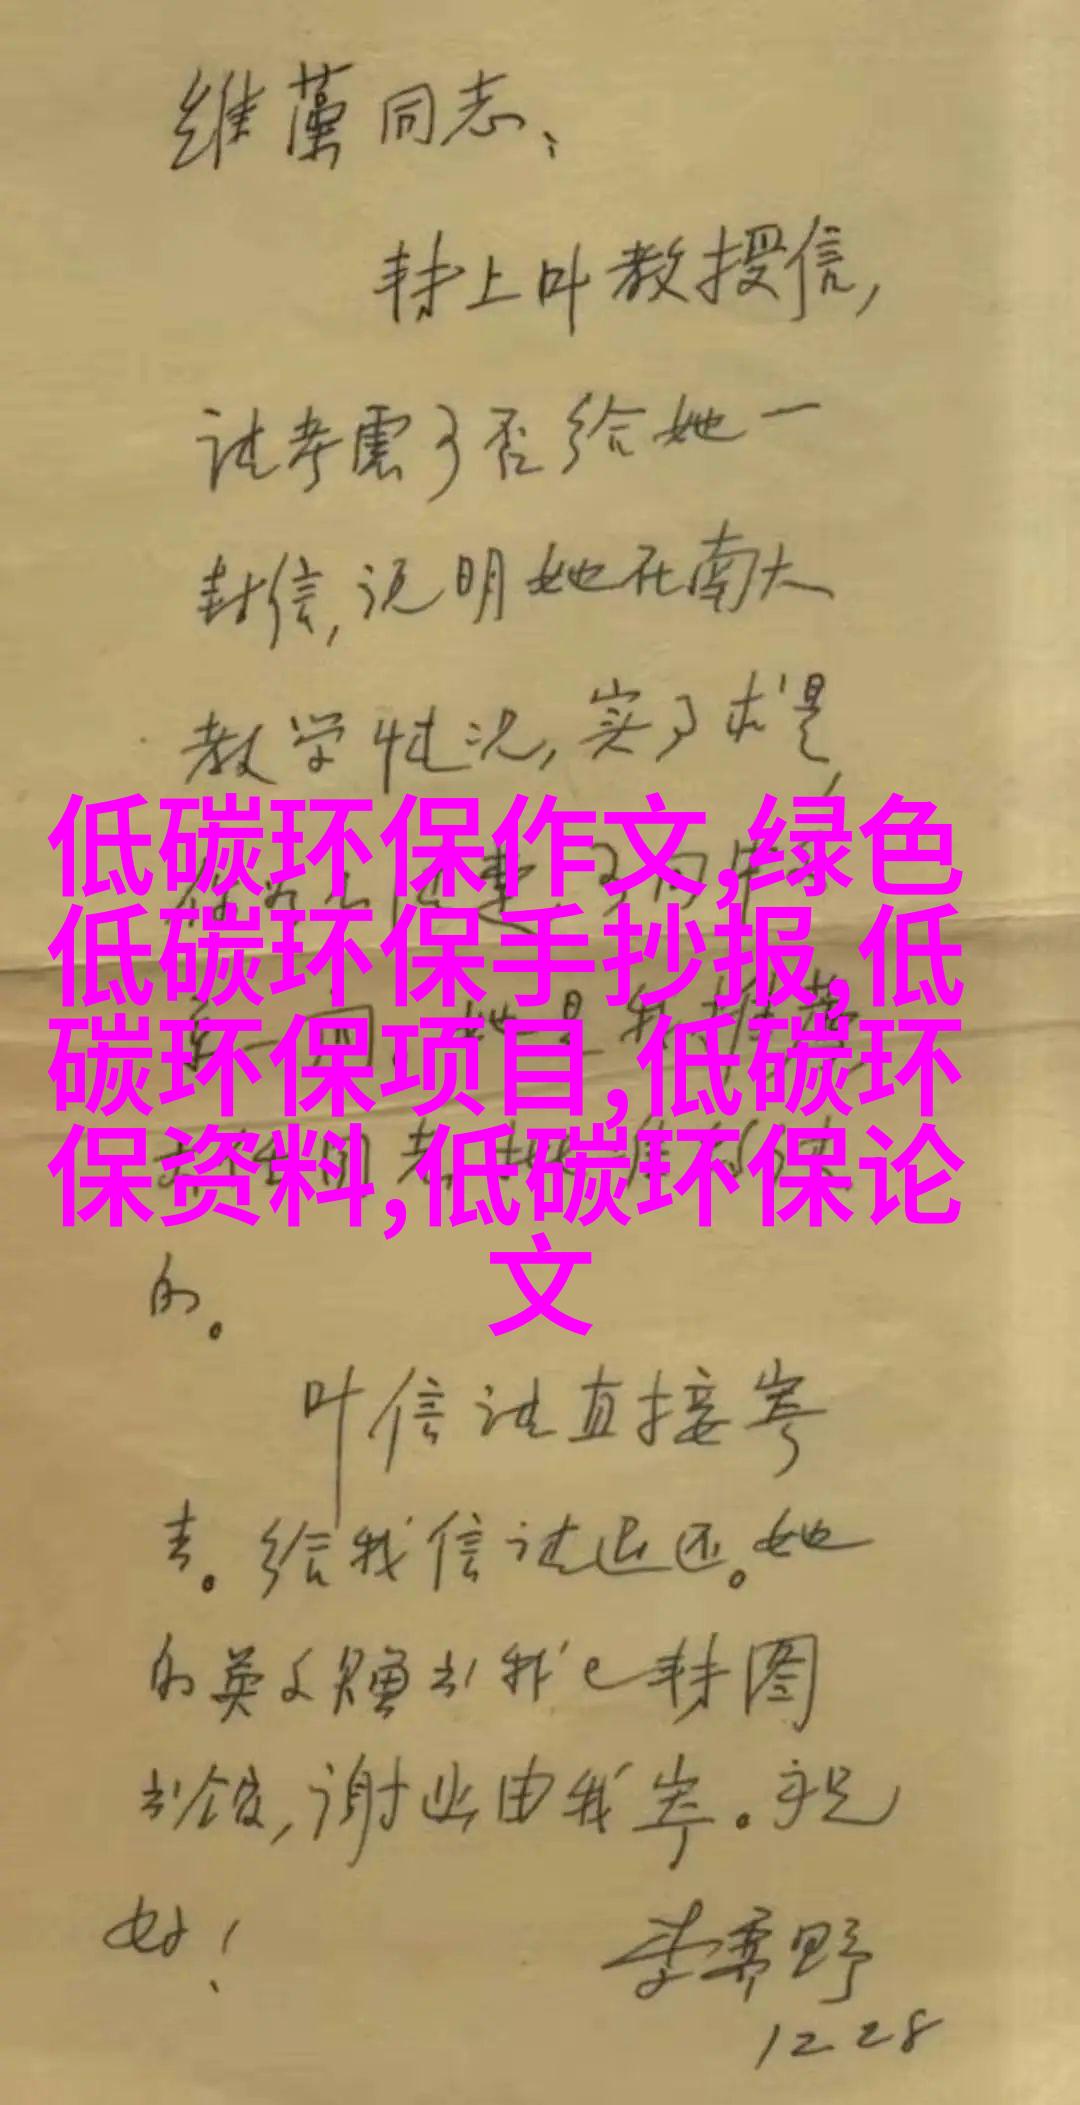 维藻同志：
转上叶教授信，
请考虑可否给她一
封信，说明她在南大
教学情况，实事求是，
低碳环保作文,绿色
低碳环保手抄报,低
碳环保项目,低碳环
保资料,低碳环保论
文
的。
叶信请直接寄
去。给我信请退还。她
的英文赠书我已转图
书馆，谢此由我寄。祝
好！
李霁野
12 28